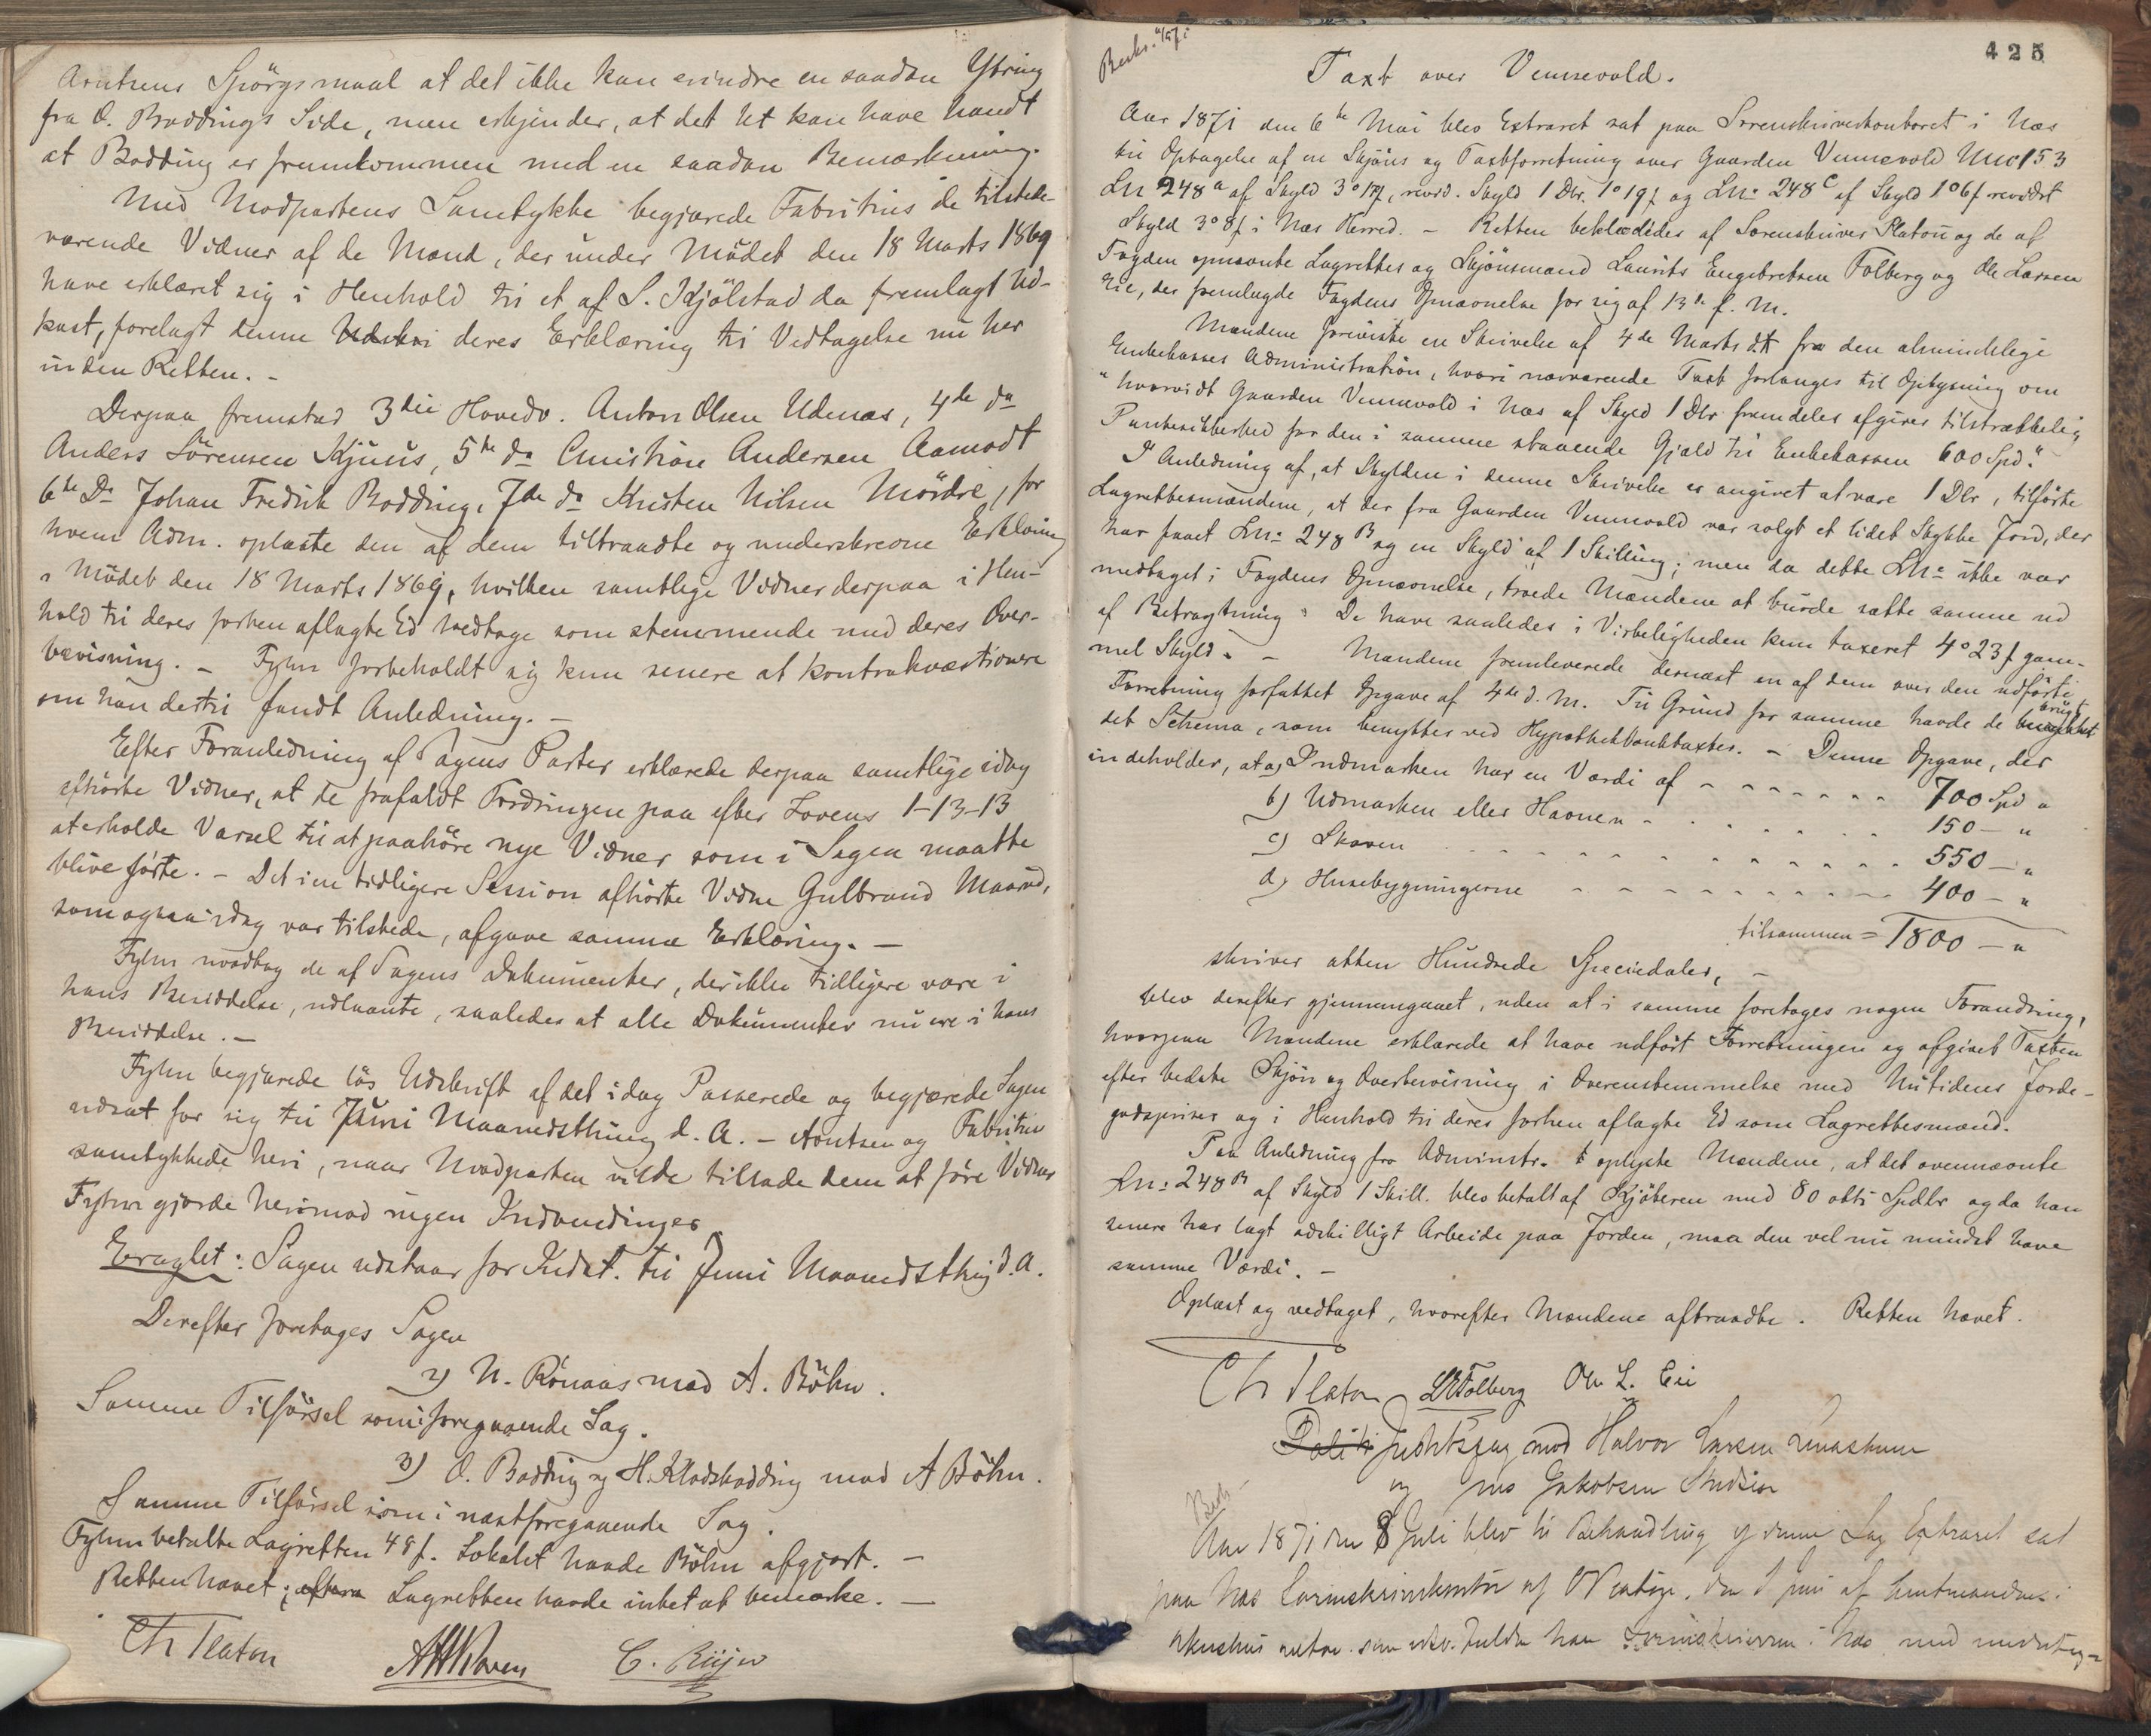 Arntsens Spörgsmaal at det ikke kan erindre en saadan Ytring
fra O. Boddings Side, men erkjender, at det let kan have hændt
at Bodding er fremkommen med en saadan Bemærkning.
Med Modpartens Samtykke begjærede Fabritius de tilstede-
værende Vidner af de Mænd, der under Mödet den 18 Marts 1869
have erklæret sig i Henhold til et af S. Kjölstad da fremlagt Ud-
kast, forelagt denne deres Erklæring til Vedtagelse nu her
inden Retten. -
Derpaa fremstod 3die Hovedv. Anton Olsen Udenæs, 4de do
Anders Sörensen Kjuus, 5te do Christian Andersen Aamodt
6te Do Johan Fredrik Bodding, 7de do Kristen Nilsen Mördre, for
hvem Adm. oplæste den af dem tiltraadte og underskrevne Erklæring
i Mödet den 18 Marts 1869, hvilken samtlige Vidner derpaa i Hen-
hold til deres forhen aflagte Ed vedtage som stemmende med deres Over-
bevisning. - Fyhn forbeholdt sig kun senere at kontrakvæstionere
om han dertil fandt Anledning. -
Efter Foranledning af Sagens Parter erklærede derpaa samtlige idag
afhörte Vidner, at de frafaldt Fordringen paa efter Lovens 1-13-13
at erholde Varsel til at paahöre nye Vidner som i Sagen maatte
blive förte. - Det i en tidligere Session afhörte Vidne Gulbrand Maarud,
som ogsaa idag var tilstede, afgave samme Erklæring. -
Fyhn modtog de af Sagens Dokumenter, der ikke tidligere vare i
hans Besiddelse, udlaante, saaledes at alle Dokumenter nu ere i hans
Besiddelse. -
Fyhn begjærede lös Udskrift af det idag Passerede og begjærede Sagen
udsat for sig til Juni Maanedsthing d. A. - Arntsen og Fabritius
samtykkede heri, naar Modparten vilde tillade dem at före Vidner
Fyhn gjorde herimod ingen Indvendinger
Eragtet: Sagen udstaar for Indst. til Juni Maanedsthing d. A.
Derefter foretages Sagen
2) N. Rönaas mod A. Böhn.
Samme Tilförsel som i foregaaende Sag.
3) O. Bodding og H. Kladsbodding mod A Böhn.
Samme Tilförsel som i næstforegaaende Sag.
Fyhn betalte Lagretten 48 f. Lokalet havde Böhn afgjort. -
Retten hævet; Lagretten havde intet at bemærke. -
Ch Platou
425
Taxt over Vennevold.
Aar 1871 den 6te Mai blev Extraret sat paa Sorenskriverkontoret i Næs
til Optagelse af en Skjöns og Taxtforretning over Gaarden Vennevold Mno 153
Lno 248a af Skyld 3o 17f, revid. Skyld 1 Dlr. 1o 19f og Lno 248c af Skyld 1o 6f revideret
Skyld 3o 8f i Næs Herred. - Retten beklædtes af Sorenskriver Platou og de af
Fogden opnævnte Lagrettes og Skjönsmænd Laurits Engebretsen Folberg og Ole Larsen
Eie, der fremlagde Fogdens Opnævnelse for sig af 13de f. M.
Mændene foreviste en Skrivelse af 4de Marts d. A. fra den almindelige
Enkekasses Administration, hvori nærværende Taxt forlanges til Oplysning om
"hvorvidt Gaarden Vennevold i Næs af Skyld 1 Dlr fremdeles afgiver tilstrækkelig
Pantesikkerhed for den i samme staaende Gjæld til Enkekassen 600 Spd."
I Anledning af, at Skylden i denne Skrivelse er angivet at være 1 Dlr, tilförte
Lagrettesmændene, at der fra Gaarden Vennevold var solgt et lidet Stykke Jord, der
har faaet Lno 248B og en Skyld af 1 Skilling; men da dette Lno ikke var
medtaget i Fogdens Opnævnelse, troede Mændene at burde sætte samme ud
af Betragtning. De have saaledes i Virkeligheden kun taxeret 4o 23f gam-
mel Skyld. - Mændene fremleverede dernæst en af dem over den udförte
Forretning forfattet Opgave af 4de d. M. Til Grund for samme havde de brugt
det Schema, som benyttes ved Hypothekbanktaxter. - Denne Opgave, der
indeholder, at a) Indmarken har en Værdi af - - - - - - 700 Spd "
b) Udmarken eller Havnen - - - - - - 150 - "
c) Skoven - - - - - - 550 - "
d) Husebygningerne - - - - - - 400 - "
tilsammen = 1800 - "
skriver atten Hundrede Speciedaler, -
blev derefter gjennemgaaet, uden at i samme foretages nogen Forandring,
hvorpaa Mændene erklærede at have udfört Forretningen og afgivet Taxten
efter bedste Skjön og Overbevisning i Overensstemmelse med Nutidens Jorde-
godspriser og i Henhold til deres forhen aflagte Ed som Lagrettesmænd.
Paa Anledning fra Administr. oplyste Mændene, at det ovennævnte
Lno 248B af Skyld 1 Skill. blev betalt af Kjöberen med 80 otti Spdlr og da han
senere har lagt adskilligt Arbeide paa Jorden, maa den vel nu mindst have
samme Værdi. -
Oplæst og vedtaget, hvorefter Mændene aftraadte. Retten hævet.
Ch Platou LEFolberg Ole L. Eie
Justitssag mod Halvor Larsen
og Jens Jakobsen
Aar 1871 den 8 Juli blev til Behandling af denne Sag Extraret sat
paa Næs Sorenskriverkontor af
Akershus som Sorenskriveren i Næs med